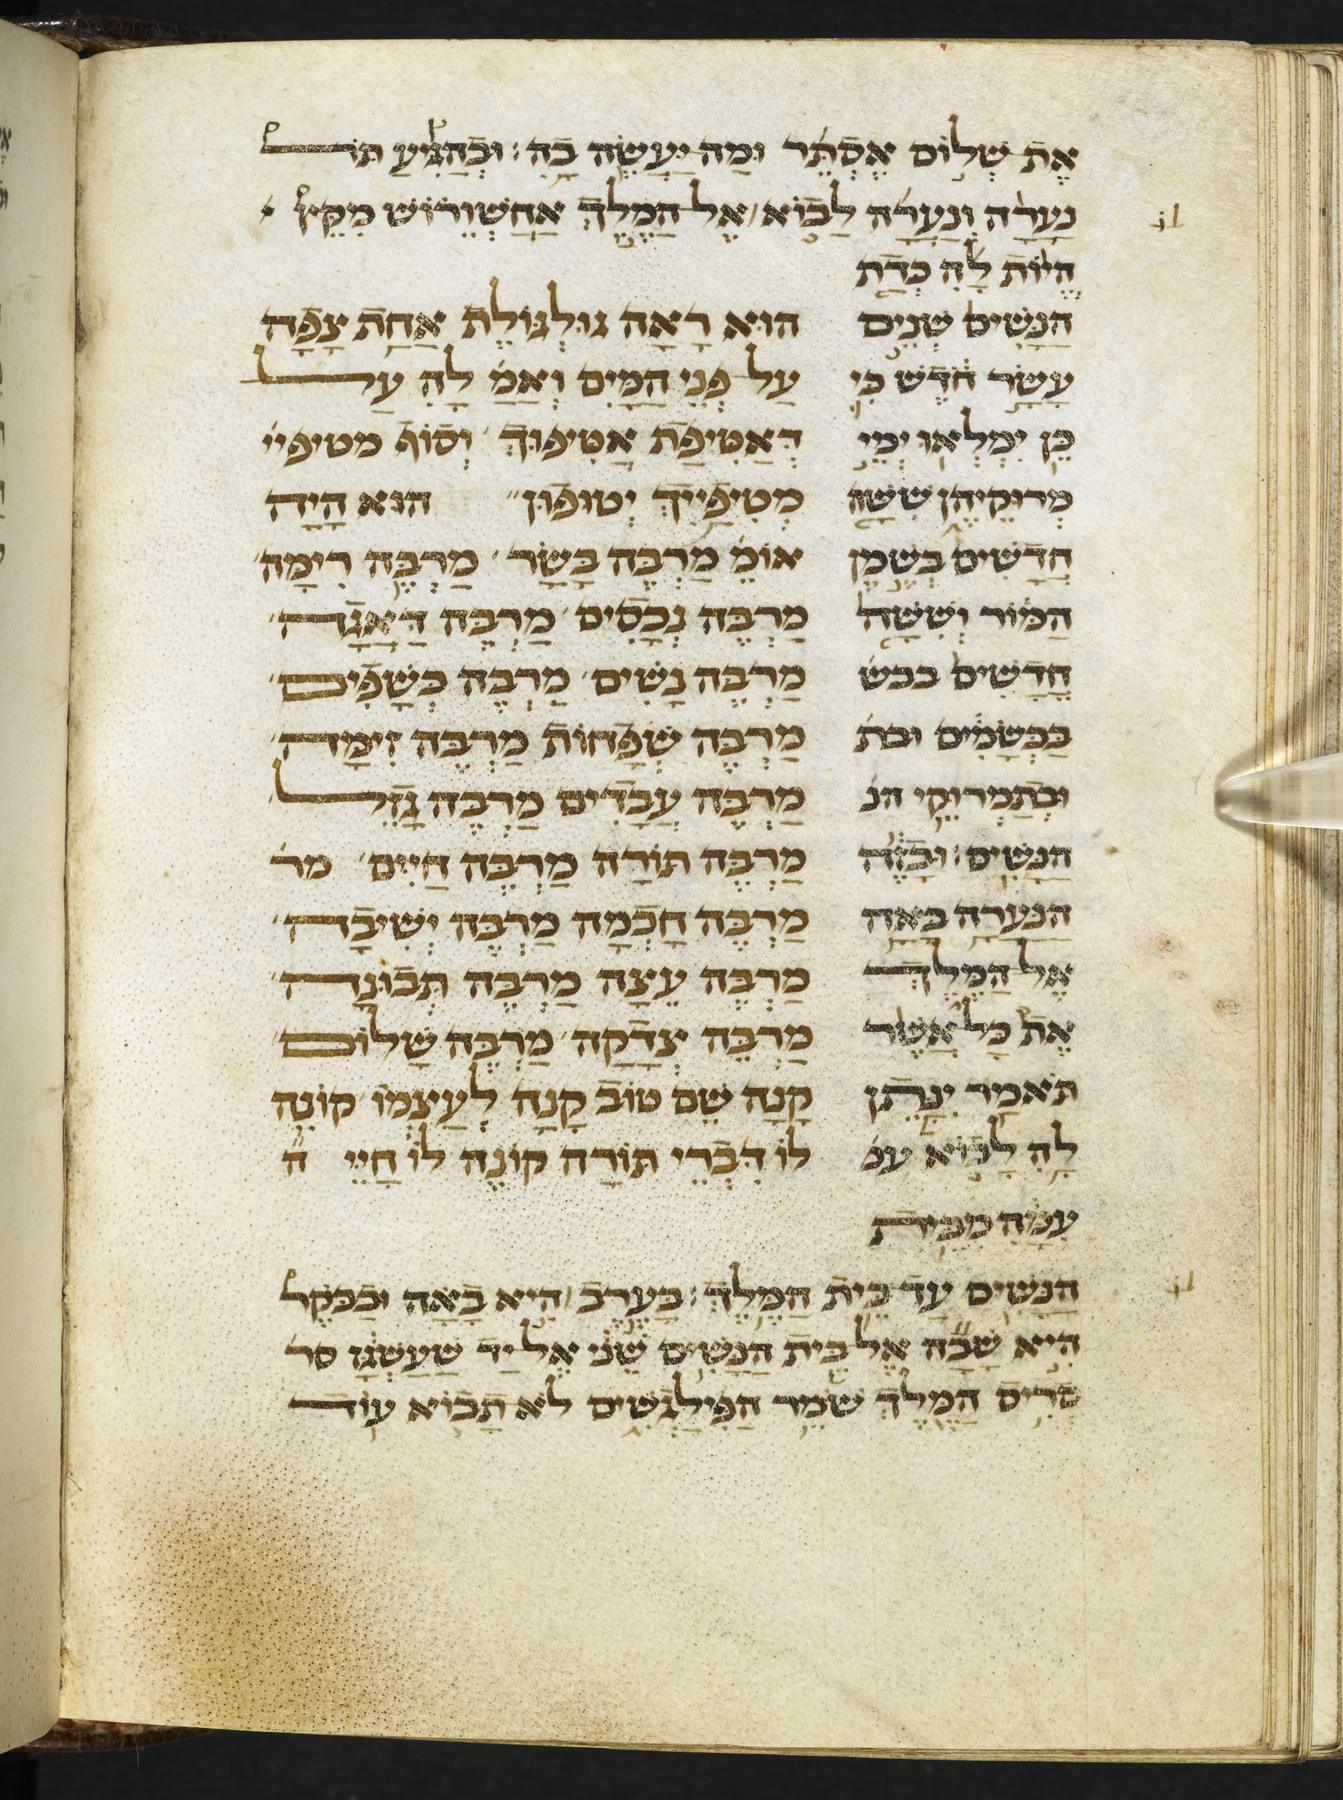 אֶת שְׁלוֹם אֶסְתֵּר וּמַה יֵּעָשֶׂה בָּהּ׃ וּבְהַגִּיעַ תֹּר
נַעֲרָה וְנַעֲרָה לָבוֹא אֶל הַמֶּלֶךְ אֲחַשְׁוֵרוֹשׁ מִקֵּץ
הֱיוֹת לָהּ כְּדָת
הַנָּשִׁים שְׁנֵים
עָשָׂר חֹדֶשׁ כִּי
כֵּן יִמְלְאוּ יְמֵי
מְרוּקֵיהֶן שִׁשָּׁה
חֳדָשִׁים בְּשֶׁמֶן
הַמּוֹר וְשִׁשָּׁה
חֳדָשִׁים בבש
בַּבְּשָׂמִים ובת
וּבְתַמְרוּקֵי הנ
הַנָּשִׁים׃ וּבָזֶה
הַנַּעֲרָה בָּאָה
אֶל הַמֶּלֶךְ
אֵת כָּל אֲשֶׁר
תֹּאמַר יִנָּתֵן
לָהּ לָבוֹא עמ
עִמָּהּ מִבֵּית
הוּא רָאָה גוּלְגּוֹלֶת אַחַת צָפָה
עַל פְּנֵי הַמַּיִם וְאָמַ׳ לָהּ עַל
דְּאַטִּיפַת אַטִיפוּךְ וְסוֹף מטיפי׳
מְטִיפַיִיךְ יְטוּפוּן׳׳ הוּא הָיָה
אוֹמֵ׳ מַרְבֶּה בָשָׂר מַרְבֶּה רִימָּה
מַרְבֶּה נְכָסִים מַרְבֶּה דְאָגָה
מַרְבֶּה נָשִׁים מַרְבֶּה כְשָׁפִים
מַרְבֶּה שְׁפָחוֹת מַרְבֶּה זִימָּה
מַרְבֶּה עֲבָדִים מַרְבֶּה גָזֵל
מַרְבֶּה תוֹרָה מַרְבֶּה חַיִּים מר׳
מַרְבֶּה חָכְמָה מַרְבֶּה יְשִׁיבָה
מַרְבֶּה עֵצָה מַרְבֶּה תְבוּנָה
מַרְבֶּה צְדָקָה מַרְבֶּה שָׁלוֹם
קָנָה שֵׁם טוֹב קָנָה לְעַצְמוֹ קוֹנֶה
לוֹ דִּבְרֵי תוֹרָה קוֹנֶה לוֹ חַיֵּי ה׳
הַנָּשִׁים עַד בֵּית הַמֶּלֶךְ׃ בָּעֶרֶב הִיא בָאָה וּבַבֹּקֶר
הִיא שָׁבָה אֶל בֵּית הַנָּשִׁים שֵׁנִי אֶל יַד שַׁעֲשְׁגַז סר׳
סְרִיס הַמֶּלֶךְ שֹׁמֵר הַפִּילַגְשִׁים לֹא תָבוֹא עוֹד